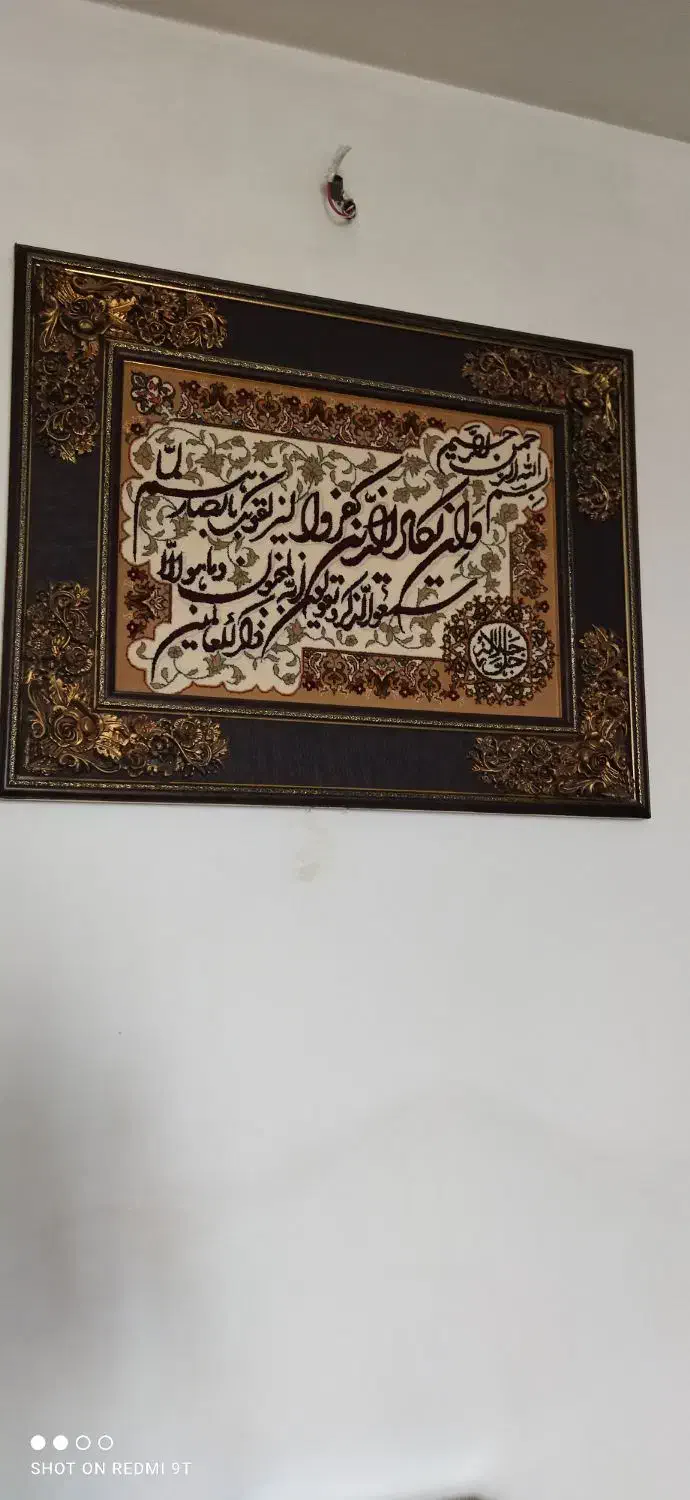 بسم الله الرحمن الرحیم
وان یکاد الذین کفروا لیزلقونک بابصارهم لما
سمعوا الذکر و یقولون انه لمجنون و ما هو الا
ذکر للعالمین
SHOT ON REDMI 9T